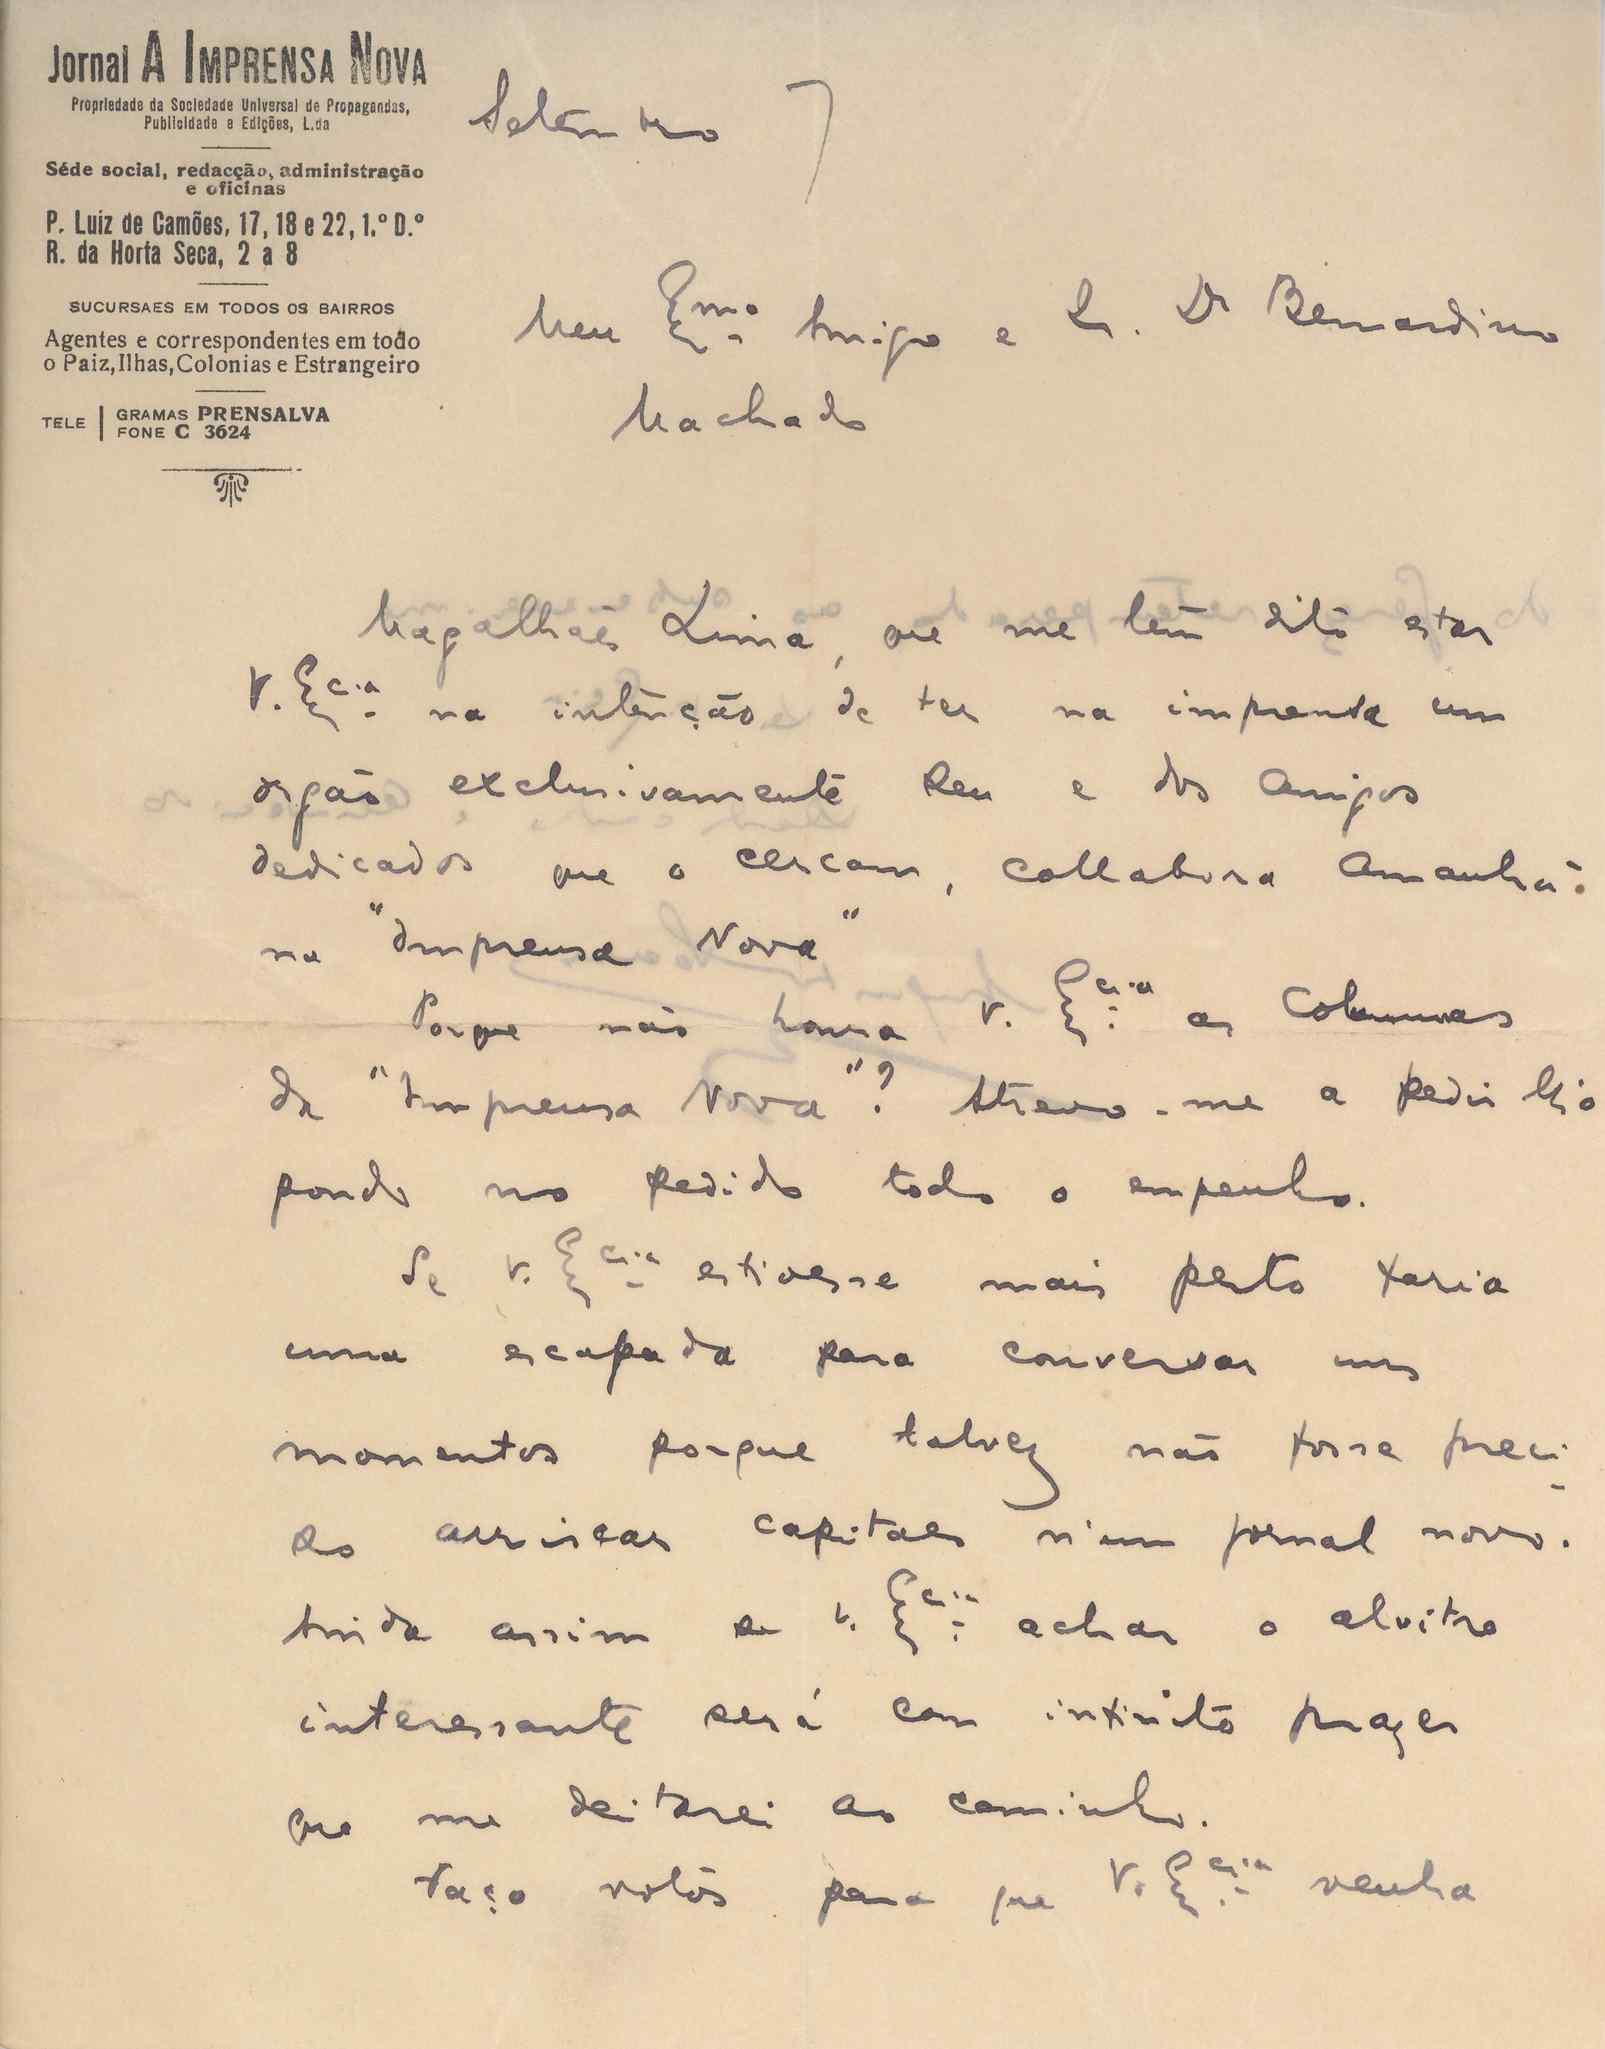 Jornal A IMPRENSA NOVA
Propriedade da Sociedade Universal de Propagandas,
Publicidade e Edições, L.da
Séde social, redacção, administração
e oficinas
P. Luiz de Camões, 17, 18 e 22, 1.º D.º
R. da Horta Seca, 2 a 8
SUCURSAES EM TODOS OS BAIRROS
Agentes e correspondentes em todo
o Paiz, Ilhas, Colonias e Estrangeiro
TELE | GRAMAS PRENSALVA
FONE C 3624
Setembro 7
Meu Exmo Amigo e Sr. Dr Bernardino
Machado
Magalhães Lima, que me tem dito estar
V. Excia na intenção de ter na imprensa um
orgão exclusivamente seu e dos amigos
dedicados que o cercam, collabora amanhã
na "Imprensa Nova"
Porque não honra V. Excia as columnas
da "Imprensa Nova"? Atrevo-me a pedir lh'o
pondo no pedido todo o empenho.
Se V. Excia estivesse mais perto faria
uma escapada para conversar uns
momentos porque talvez não fosse preci-
so arriscar capitaes n'um jornal novo.
Ainda assim se V. Excia achar o alvitre
interessante será com infinito prazer
que me deitarei ao caminho.
Faço votos para que V. Excia venha